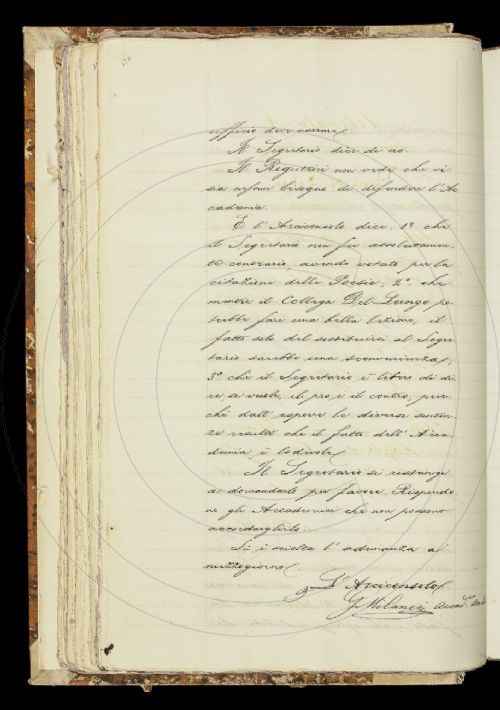 ufficio dover narrare.
Il Segretario dice di no.
Il Rigutini non vede che vi
sia nessun bisogno di difendere l'Ac
cademia.
E l'Arciconsolo dice, 1º che
il Segretario non fu assolutamen-
te contrario, avendo votato per la
citazione delle Poesie; 2º che
mentre il Collega Del-Lungo po-
trebbe fare una bella lezione, il
fatto solo del sostituirsi al Segre
tario sarebbe una sconvenienza;
3º che il Segretario è libero di di-
re se vuole, il pro e il contro, pur-
chè dall'esporre le diverse senten-
ze resulti che il fatto dell'Acca-
demia è lodevole.
Il Segretario si restringe
a domandarlo per favore. Rispondo-
no gli Accademici che non possono
accordarglielo.
Si è sciolta l'adunanza a
mezzogiorno.
L'Arciconsolo
G. Milanesi